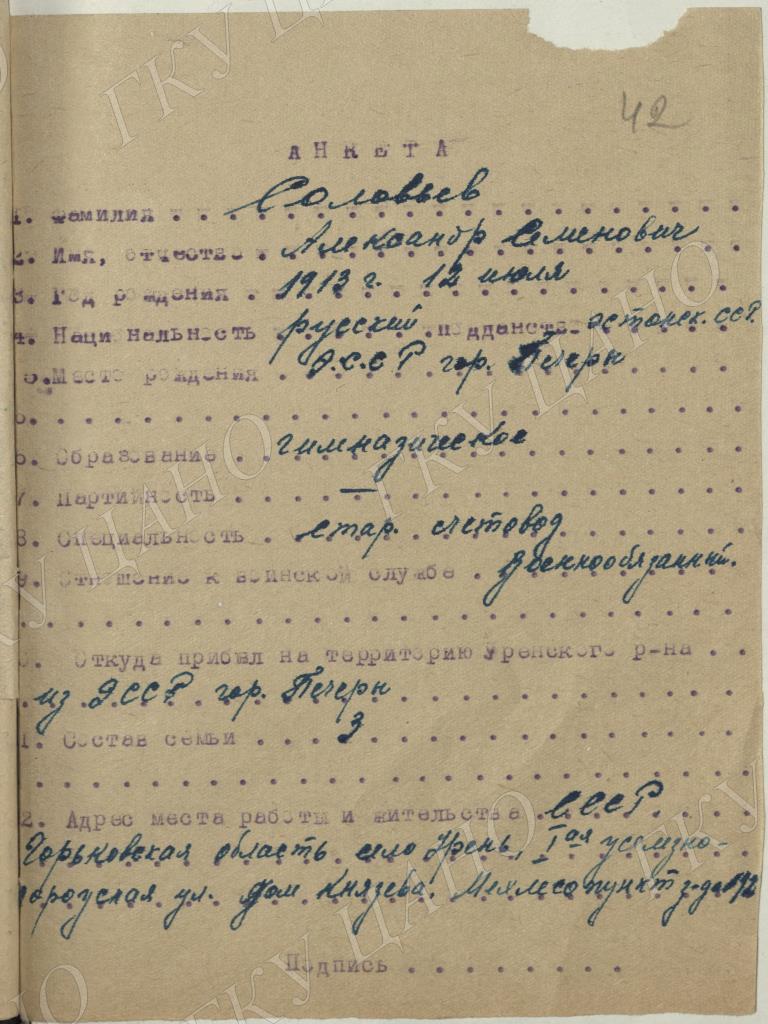 42
АНКЕТА
1. Фамилия . . Соловьев
2. Имя, отчество . Александр Семенович
3. Год рождения . 1913 г. 12 июля
4. Национальность . русский . подданство эстонск. ССР.
5. Место рождения . Э.С.С Р гор. Печеры
6. Образование . . гимназическое
7. Партийность . . . —
8. Специальность . стар. счетовод
9. Отношение к воинской службе . Военнообязанный.
Откуда прибыл на территорию Уренского р-на . .
из ЭССР. гор. Печеры
1. Состав семьи . . . 3
2. Адрес места работы и жительства СССР
Горьковская область село Урень, Iая
ул. Дом Князева. Мехлесопункт з-да 192
Подпись . . . . . . . . .
ГКУ ЦАНО